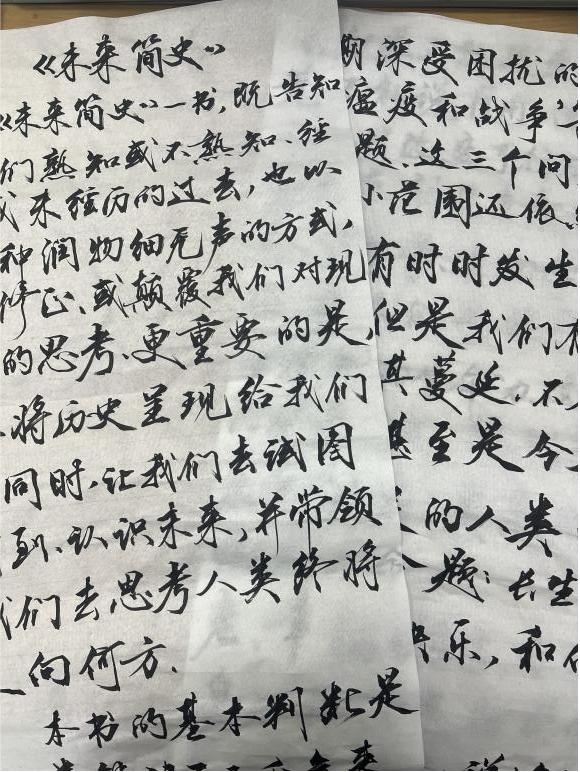 《未来简史》
《未来简史》一书,既告知
们熟知或不熟知、经
或未经历的过去,也以
种润物细无声的方式,
修正、或颠覆我们对现
的思考、更重要的是,
将历史呈现给我们
同时,让我们去试图
到、认识未来,并带领
我们去思考人类终将
向何方.
本书的基本判断是
期深受困扰的
瘟疫和战争
题、这三个问
小范围还依
有时时发生
但是我们有
其蔓延,不
甚至是今
的人类
题:长生
快乐,和